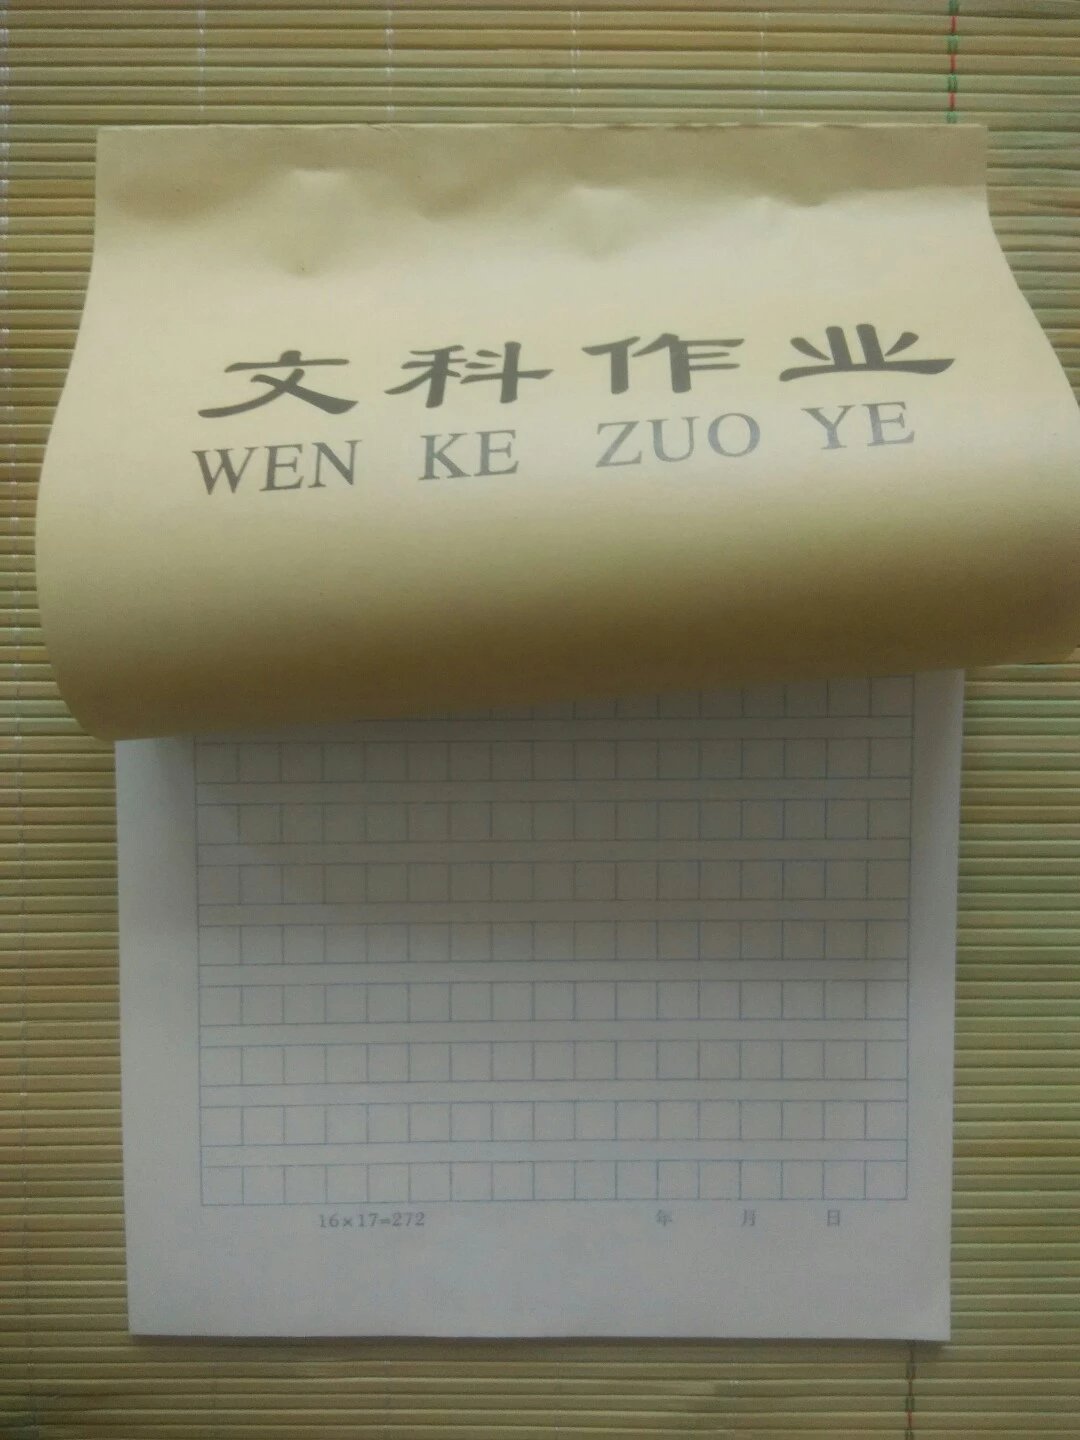 文科作业
WEN KE ZUO YE
16×17=272 年 月 日